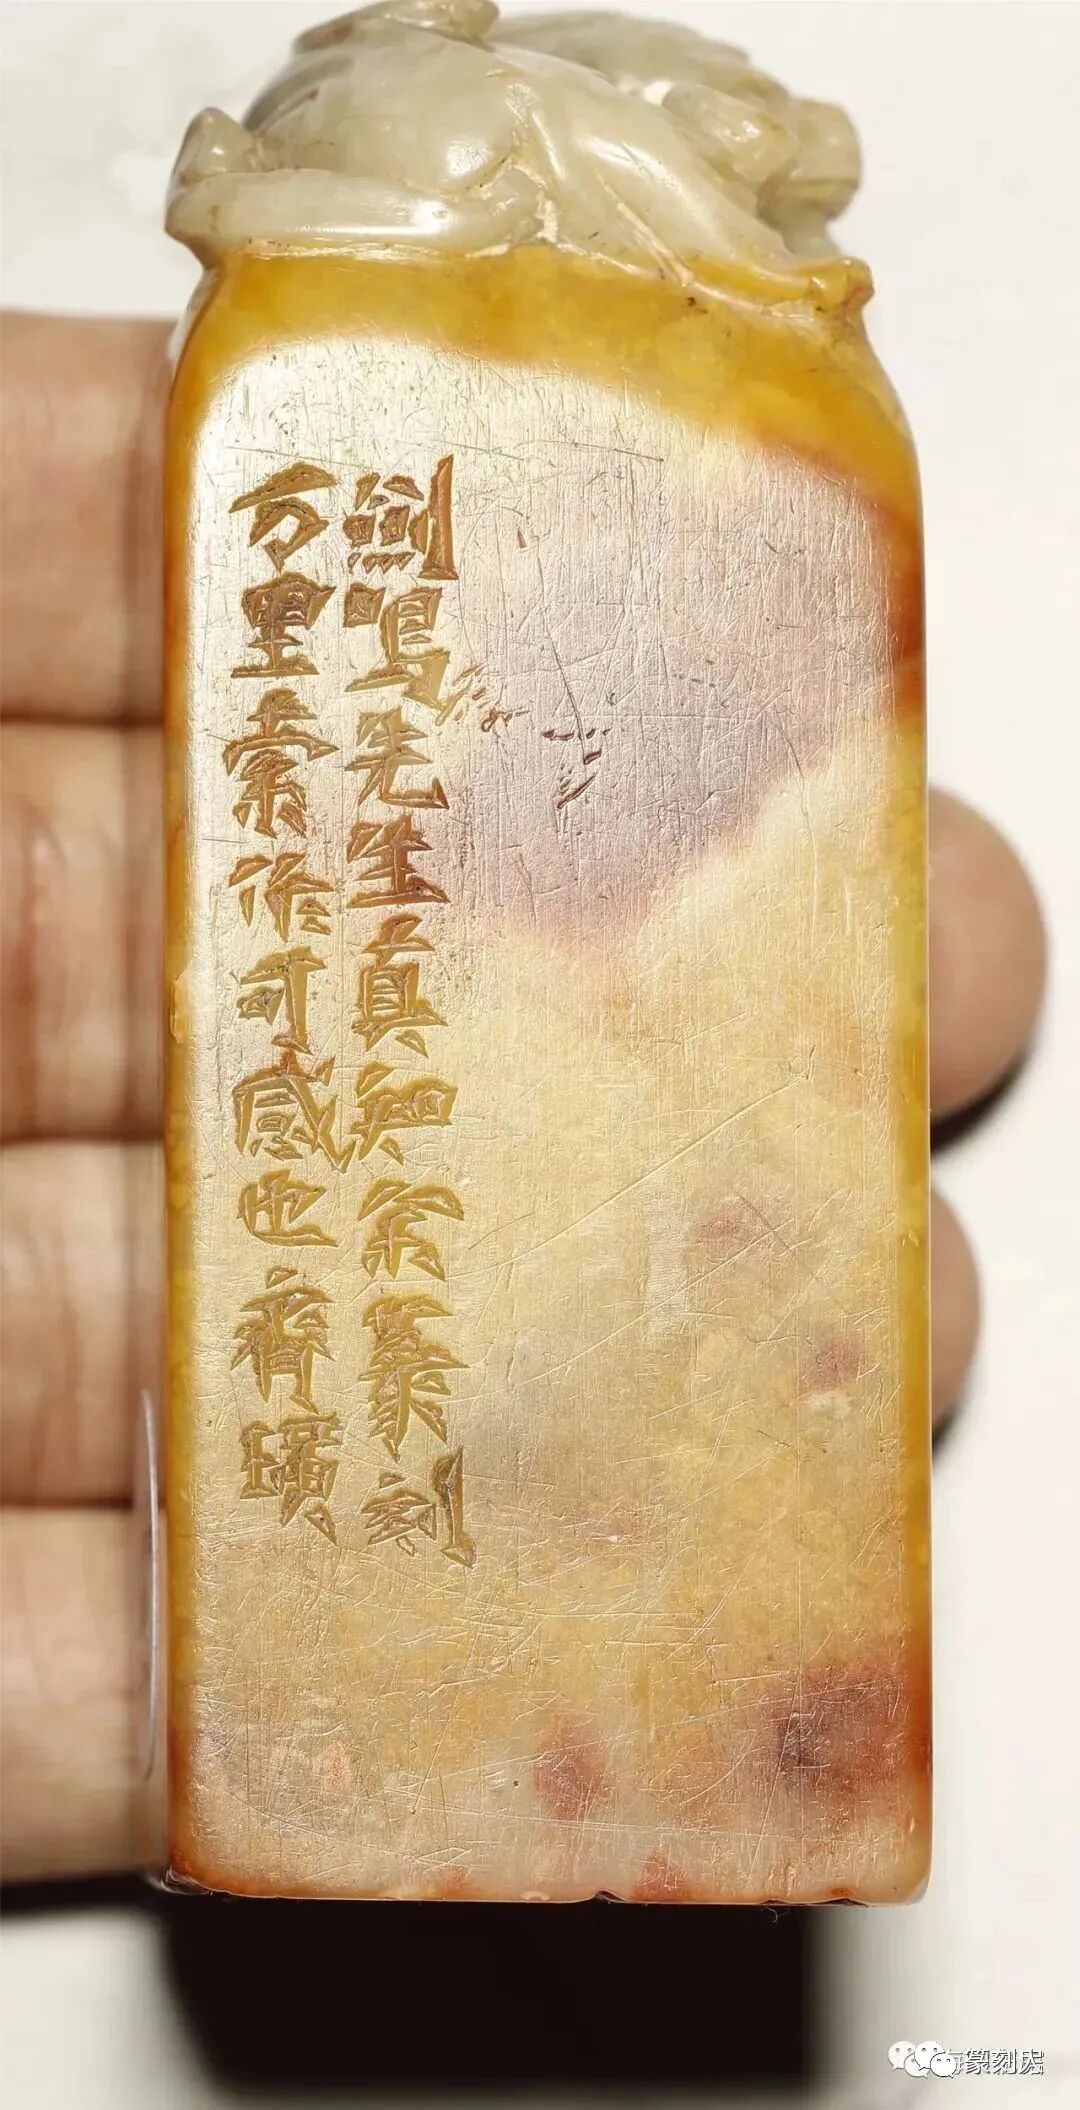 劍鳴先生真知余篆刻
万里索作可感也齊璜
篆刻尼